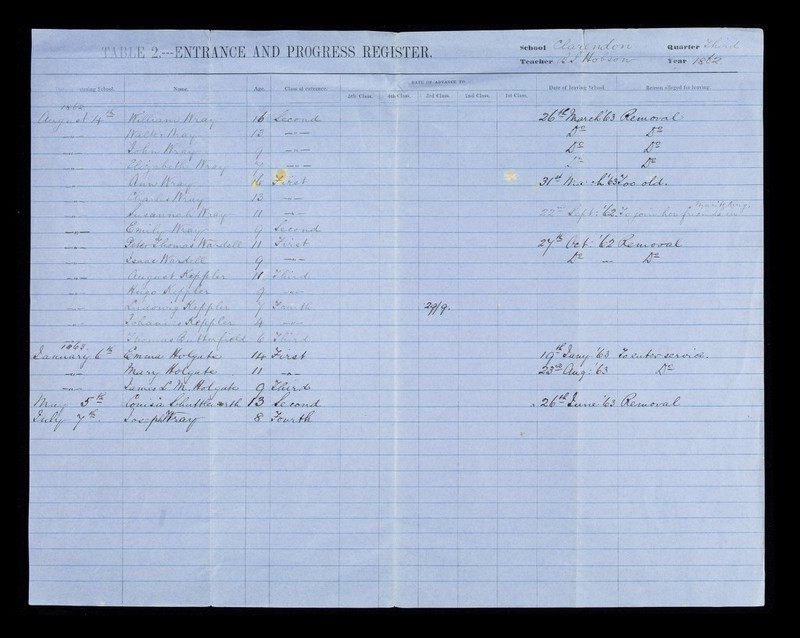 TABLE 2.—ENTRANCE AND PROGRESS REGISTER.
School Clarendon Quarter Third
Teacher Hobson Year 1862
Name Age. Class of entrance. DATE OF ADVANCE TO Date of leaving School. Reason alleged for leaving.
5th Class. 4th Class. 3rd Class. 2nd Class. 1st Class.
1862
August 4th William Wray 16 Second 26th March '63 Removal
Walter Wray 12 —"— Do Do
John Wray 9 —"— Do Do
Elizabeth Wray 7 —"— Do Do
Ann Wray 16 First 31st March '63 Too old.
Charles Wray 13 —"—
Susannah Wray 11 —"— 22nd Sept: '62 To join her friends in
Emily Wray 9 Second
Peter Thomas Wardell 11 First 27th Oct: '62 Removal
Isaac Wardell 9 —"— Do Do
August Keppler 11 Third
Hugo Keppler 9 —"—
Ludowig Keppler 7 Fourth 29/9.
Johannes Keppler 4 —"—
Thomas Butterfield 6 Third
1863.
January 6th Emma Holgate 14 First 19th Jany '63 To enter service.
Mary Holgate 11 —"— 23rd Aug: '63 Do
James S. M. Holgate 9 Third
May 5th Louisa Shuttleworth 13 Second 26th June '63 Removal
July 7th. Joseph Wray 8 Fourth